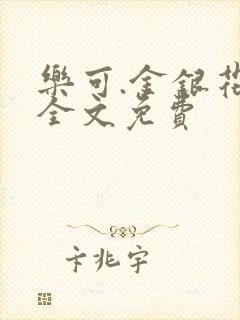 樂可.金銀花
全文免費
卞兆宇